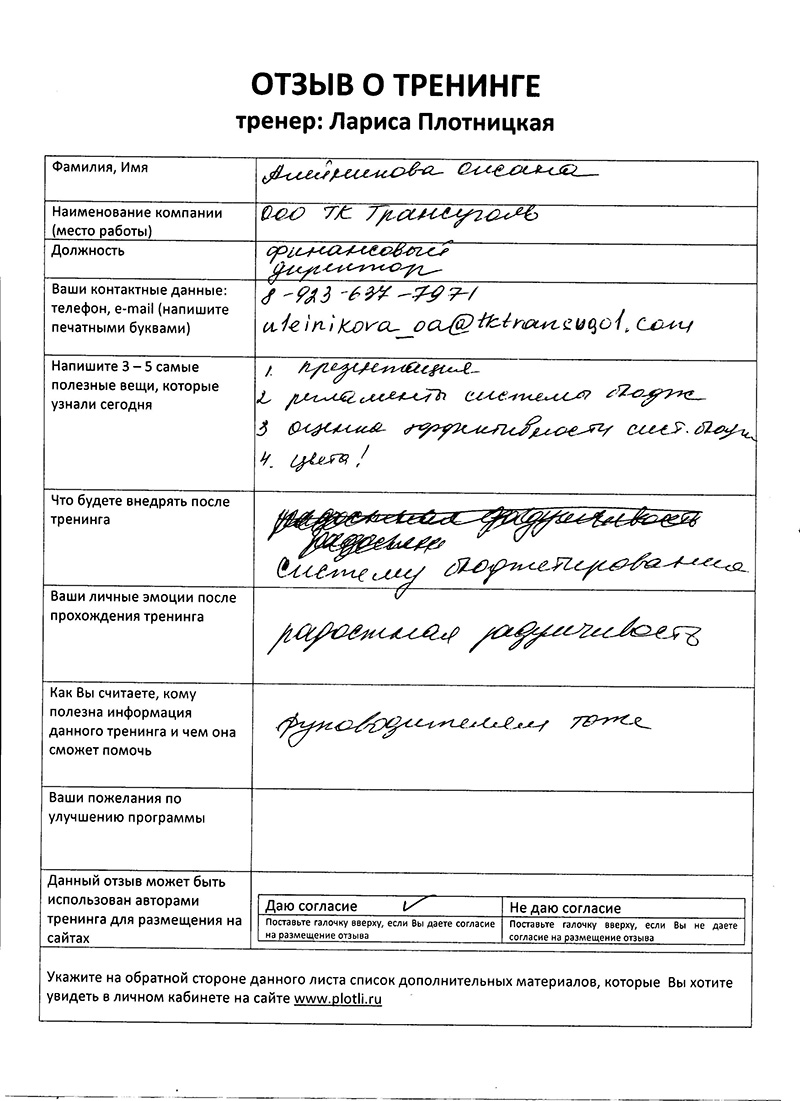 ОТЗЫВ О ТРЕНИНГЕ
тренер: Лариса Плотницкая
Фамилия, Имя
Алейникова Оксана
Наименование компании
(место работы)
ООО ТК Трансуголь
Должность
финансовый
директор
Ваши контактные данные:
телефон, e-mail (напишите
печатными буквами)
8-923-637-7971
aleinikova_oa@tktransugol.com
Напишите 3 – 5 самые
полезные вещи, которые
узнали сегодня
1. презентация
2 регламенты системы бюдж
3 оценка эффективности сист. бюдж
4. цвета!
Что будете внедрять после
тренинга
радостная задумчивость
радостная
систему бюджетирования
Ваши личные эмоции после
прохождения тренинга
радостная задумчивость
Как Вы считаете, кому
полезна информация
данного тренинга и чем она
сможет помочь
руководителям тоже
Ваши пожелания по
улучшению программы
Данный отзыв может быть
использован авторами
тренинга для размещения на
сайтах
Даю согласие ✓
Поставьте галочку вверху, если Вы даете согласие
на размещение отзыва
Не даю согласие
Поставьте галочку вверху, если Вы не даете
согласие на размещение отзыва
Укажите на обратной стороне данного листа список дополнительных материалов, которые Вы хотите
увидеть в личном кабинете на сайте www.plotli.ru